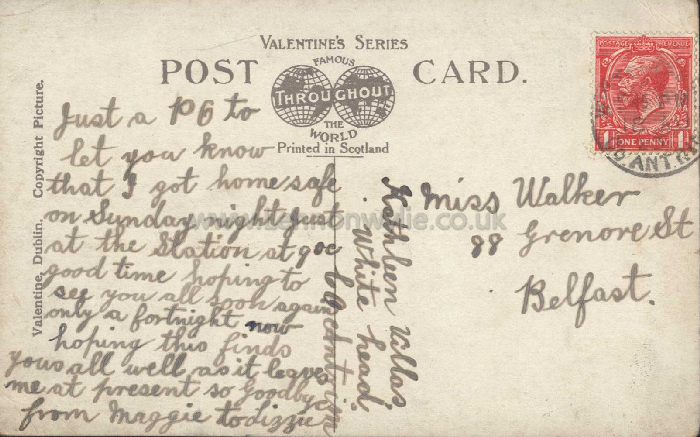 VALENTINE'S SERIES
POST CARD.
FAMOUS
THROUGHOUT
THE
WORLD
Printed in Scotland
Valentine, Dublin. Copyright Picture.
POSTAGE REVENUE
ONE PENNY
CO. ANTRIM
Just a P to
let you know
that I got home safe
on Synday night Just
at the Station at goe
good time hoping to
see you all soon again
only a fortnight now
hoping this finds
yous all well as it leaves
me at present so Goodbye
from Maggie to Lizzie
Kathleen Villas
White head.
Co Antrim
Miss Walker
88 Grenore St
Belfast.